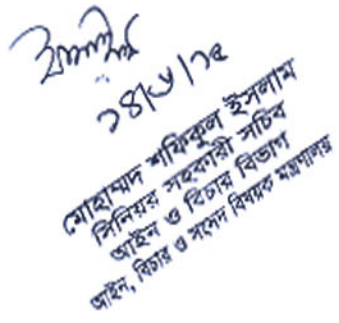 ২৪/৮/১৫
মোহাম্মদ শফিকুল ইসলাম
সিনিয়র সহকারী সচিব
আইন ও বিচার বিভাগ
আইন, বিচার ও সংসদ বিষয়ক মন্ত্রণালয়